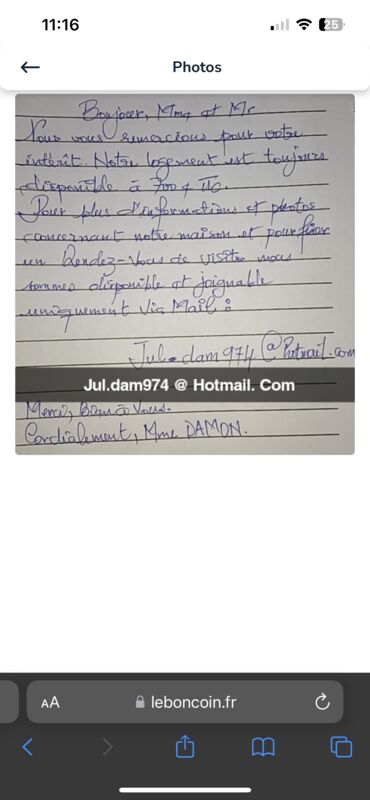 11:16
25
Photos
Bonjour, Mme et Mr
Nous vous remercions pour votre
intérît. Notre logement est toujours
disponible à 700 € TTC.
Pour plus d'informations et photos
concernant notre maison et pour fixer
un Rendez-Vous de visite nous
sommes disponible et joignable
uniquement Via Mail :
Jul.dam974@hotmail.com
Jul.dam974 @ Hotmail. Com
Merci, Bien à Vous.
Cordialement, Mme DAMON.
AA
leboncoin.fr